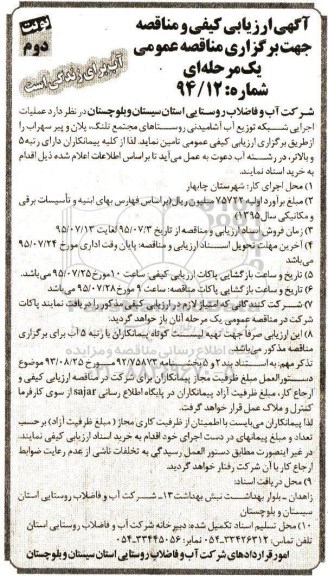 آگهی ارزیابی کیفی و مناقصه
جهت برگزاری مناقصه عمومی
یک مرحله‌ای
شماره: ۹۴/۱۲
نوبت
دوم
آب برای زندگی است
شرکت آب و فاضلاب روستایی استان سیستان و بلوچستان در نظر دارد عملیات
اجرایی شبکه توزیع آب آشامیدنی روستاهای مجتمع تلنگ، پلان و پیر سهراب را
از طریق برگزاری ارزیابی کیفی عمومی تامین نماید. لذا از کلیه پیمانکاران دارای رتبه ۵
و بالاتر، در رشته آب دعوت به عمل می‌آید تا براساس اطلاعات اعلام شده ذیل اقدام
به خرید اسناد نمایند.
۱) محل اجرای کار: شهرستان چابهار
۲) مبلغ برآورد اولیه ۷۵۷۲۲ میلیون ریال (براساس فهارس بهای ابنیه و تأسیسات برقی
و مکانیکی سال ۱۳۹۵)
۳) زمان فروش اسناد ارزیابی و مناقصه از تاریخ ۹۵/۰۷/۳ لغایت ۹۵/۰۷/۱۳
۴) آخرین مهلت تحویل اسناد ارزیابی و مناقصه: پایان وقت اداری مورخ ۹۵/۰۷/۲۴
می‌باشد
۵) تاریخ و ساعت بازگشایی پاکات ارزیابی کیفی: ساعت ۱۰ مورخ ۹۵/۰۷/۲۵ می‌باشد.
۶) تاریخ و ساعت بازگشایی پاکات مناقصه: ساعت ۹ مورخ ۹۵/۰۷/۲۸ می‌باشد
۷) شرکت کنندگانی که امتیاز لازم در ارزیابی کیفی مذکور را دریافت نمایند پاکات
شرکت در مناقصه عمومی یک مرحله آنان باز خواهد گردید.
۸) این ارزیابی صرفا جهت تهیه لیست کوتاه پیمانکاران با رتبه ۵ آب برای برگزاری
مناقصه مذکور می‌باشد.
تذکر مهم: به استناد بند ۲ و ۵ بخشنامه ۹۲/۷۵۸۷۳ مورخ ۹۳/۰۸/۲۵ موضوع
دستورالعمل مبلغ ظرفیت مجاز پیمانکاران برای شرکت در مناقصه ارزیابی کیفی و
ارجاع کار، مبلغ ظرفیت آزاد پیمانکاران در پایگاه اطلاع رسانی sajar از سوی کارفرما
کنترل و ملاک عمل قرار خواهد گرفت.
لذا پیمانکاران می‌بایست با اطمینان از ظرفیت کاری مجاز (مبلغ ظرفیت آزاد) برحسب
تعداد و مبلغ پیمانهای در دست اجرای خود اقدام به خرید اسناد ارزیابی کیفی نمایند.
در غیر اینصورت مطابق دستور العمل رسیدگی به تخلفات ناشی از عدم رعایت ضوابط
ارجاع کار با آن شرکت رفتار خواهد گردید.
۹) محل دریافت اسناد:
زاهدان ـ بلوار بهداشت نبش بهداشت ۱۳ ـ شرکت آب و فاضلاب روستایی استان
سیستان و بلوچستان
۱۰) محل تسلیم اسناد تکمیل شده: دبیرخانه شرکت آب و فاضلاب روستایی استان
تلفن تماس: ۳۳۴۲۶۳۱۲-۰۵۴ نمابر: ۳۳۴۴۵۰۵۶-۰۵۴
امور قراردادهای شرکت آب و فاضلاب روستایی استان سیستان و بلوچستان